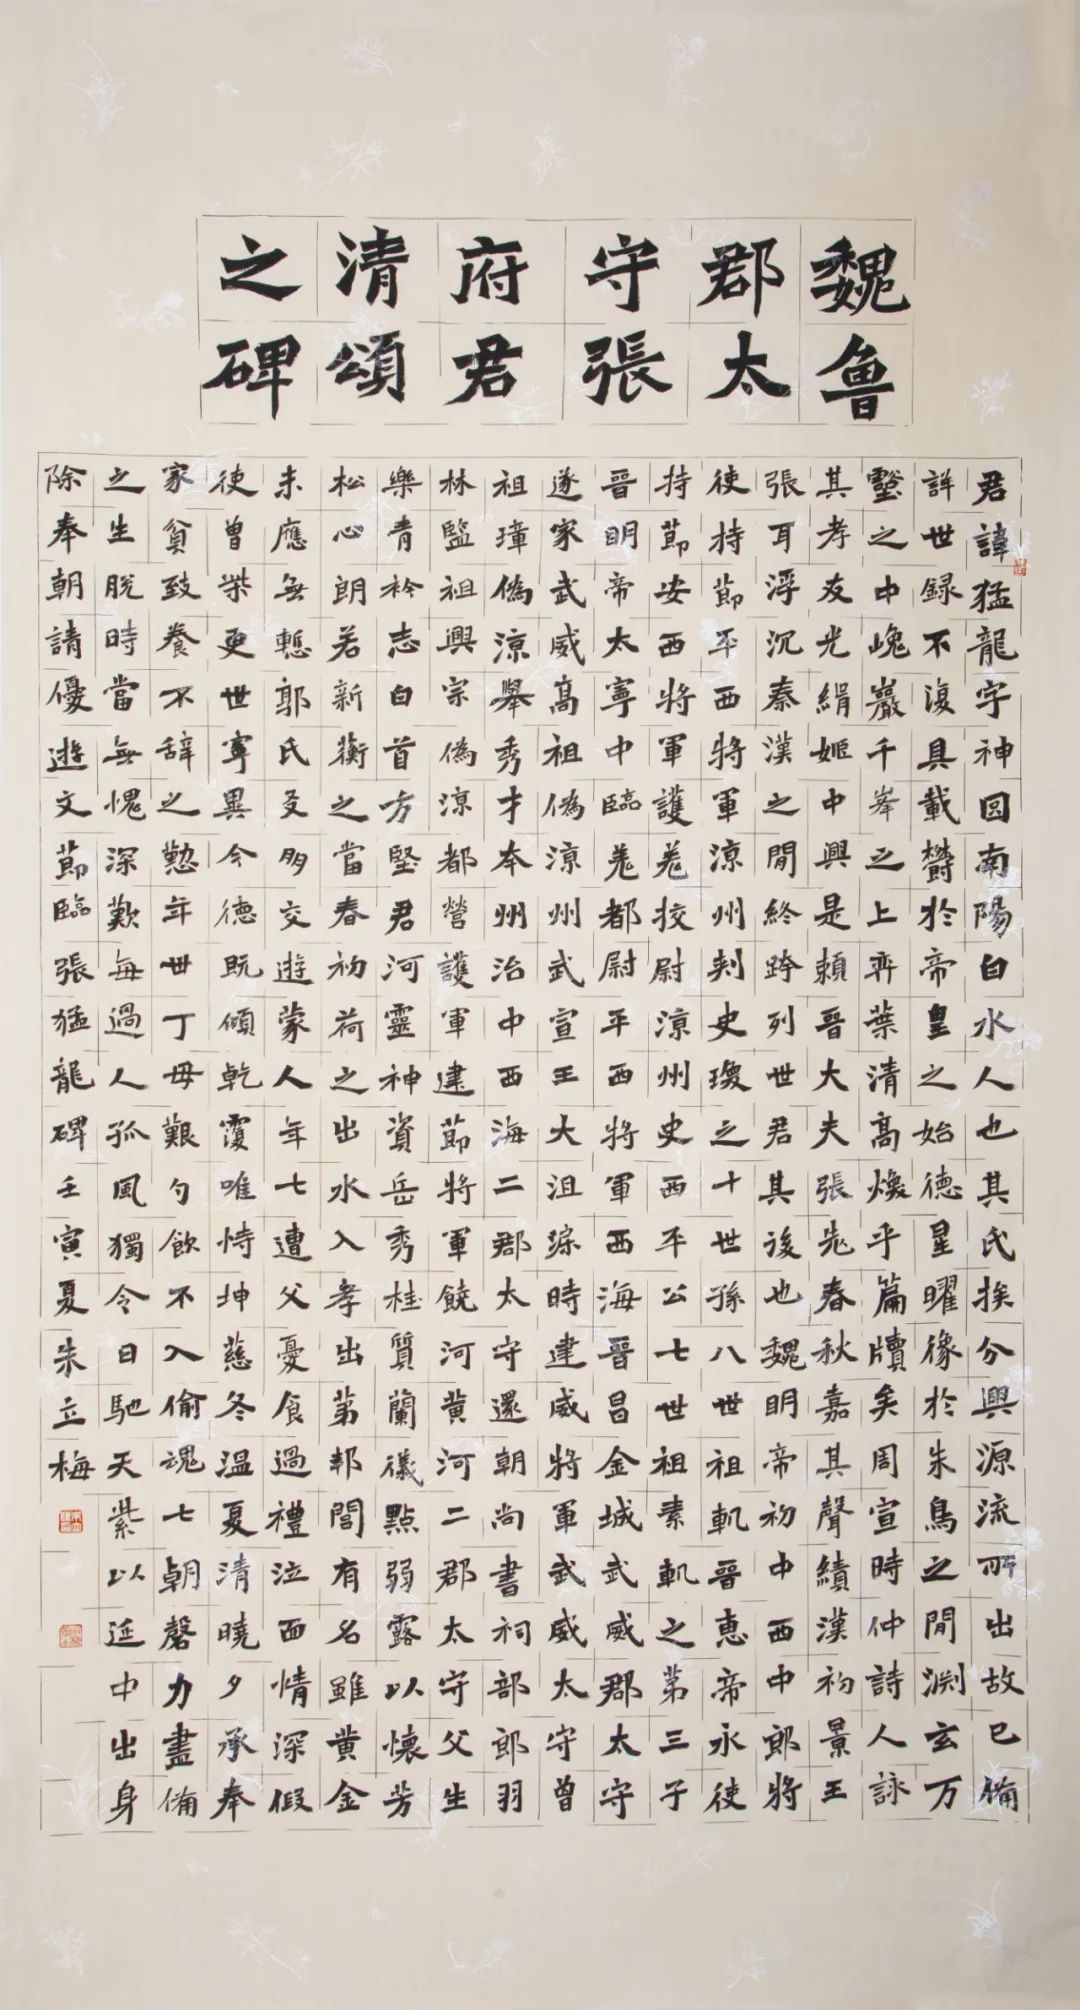 魏魯
郡太
守張
府君
清頌
之碑
君諱猛龍字神囧南陽白水人也其氏族分興源流所出故已備
詳世録不復具載欝於帝皇之始德星曜像於朱鳥之間淵玄万
壑之中巉巖千峯之上弈葉清高煥乎篇牘矣周宣時仲詩人詠
其孝友光緝姬中興是賴晉大夫張老春秋嘉其聲績漢初景王
張耳浮沉秦漢之間終跨列世君其後也魏明帝初中西中郎將
使持節平西將軍涼州刾史瓊之十世孫八世祖軌晉惠帝永使
持節安西將軍護羌挍尉涼州史西平公七世祖素軌之第三子
晉明帝太寧中臨羌都尉平西將軍西海晉昌金城武威郡太守
遂家武威高祖偽涼州武宣王大沮琮時建威將軍武威太守曾
祖璋偽涼舉秀才本州治中西海二郡太守還朝尚書祠部郎羽
林監祖興宗偽涼都營護軍建節將軍饒河黃河二郡太守父生
樂青衿志白首方堅君河靈神資岳秀桂質蘭儀點弱露以懷芳
松心朗若新蘅之當春初荷之出水入孝出第邦閭有名雖黃金
未應無慙郭氏友朋交遊蒙人年七遭父憂食過禮泣面情深假
使曾柴更世寧異今德既傾乾覆唯恃坤慈冬温夏清曉夕承奉
家貧致養不辞之懃年丗丁母艱勺飲不入偷魂七朝磬力盡備
之生脱時當無愧深歎每過人孤風獨令日馳天紫以延中出身
除奉朝請優遊文節臨張猛龍碑壬寅夏朱立梅